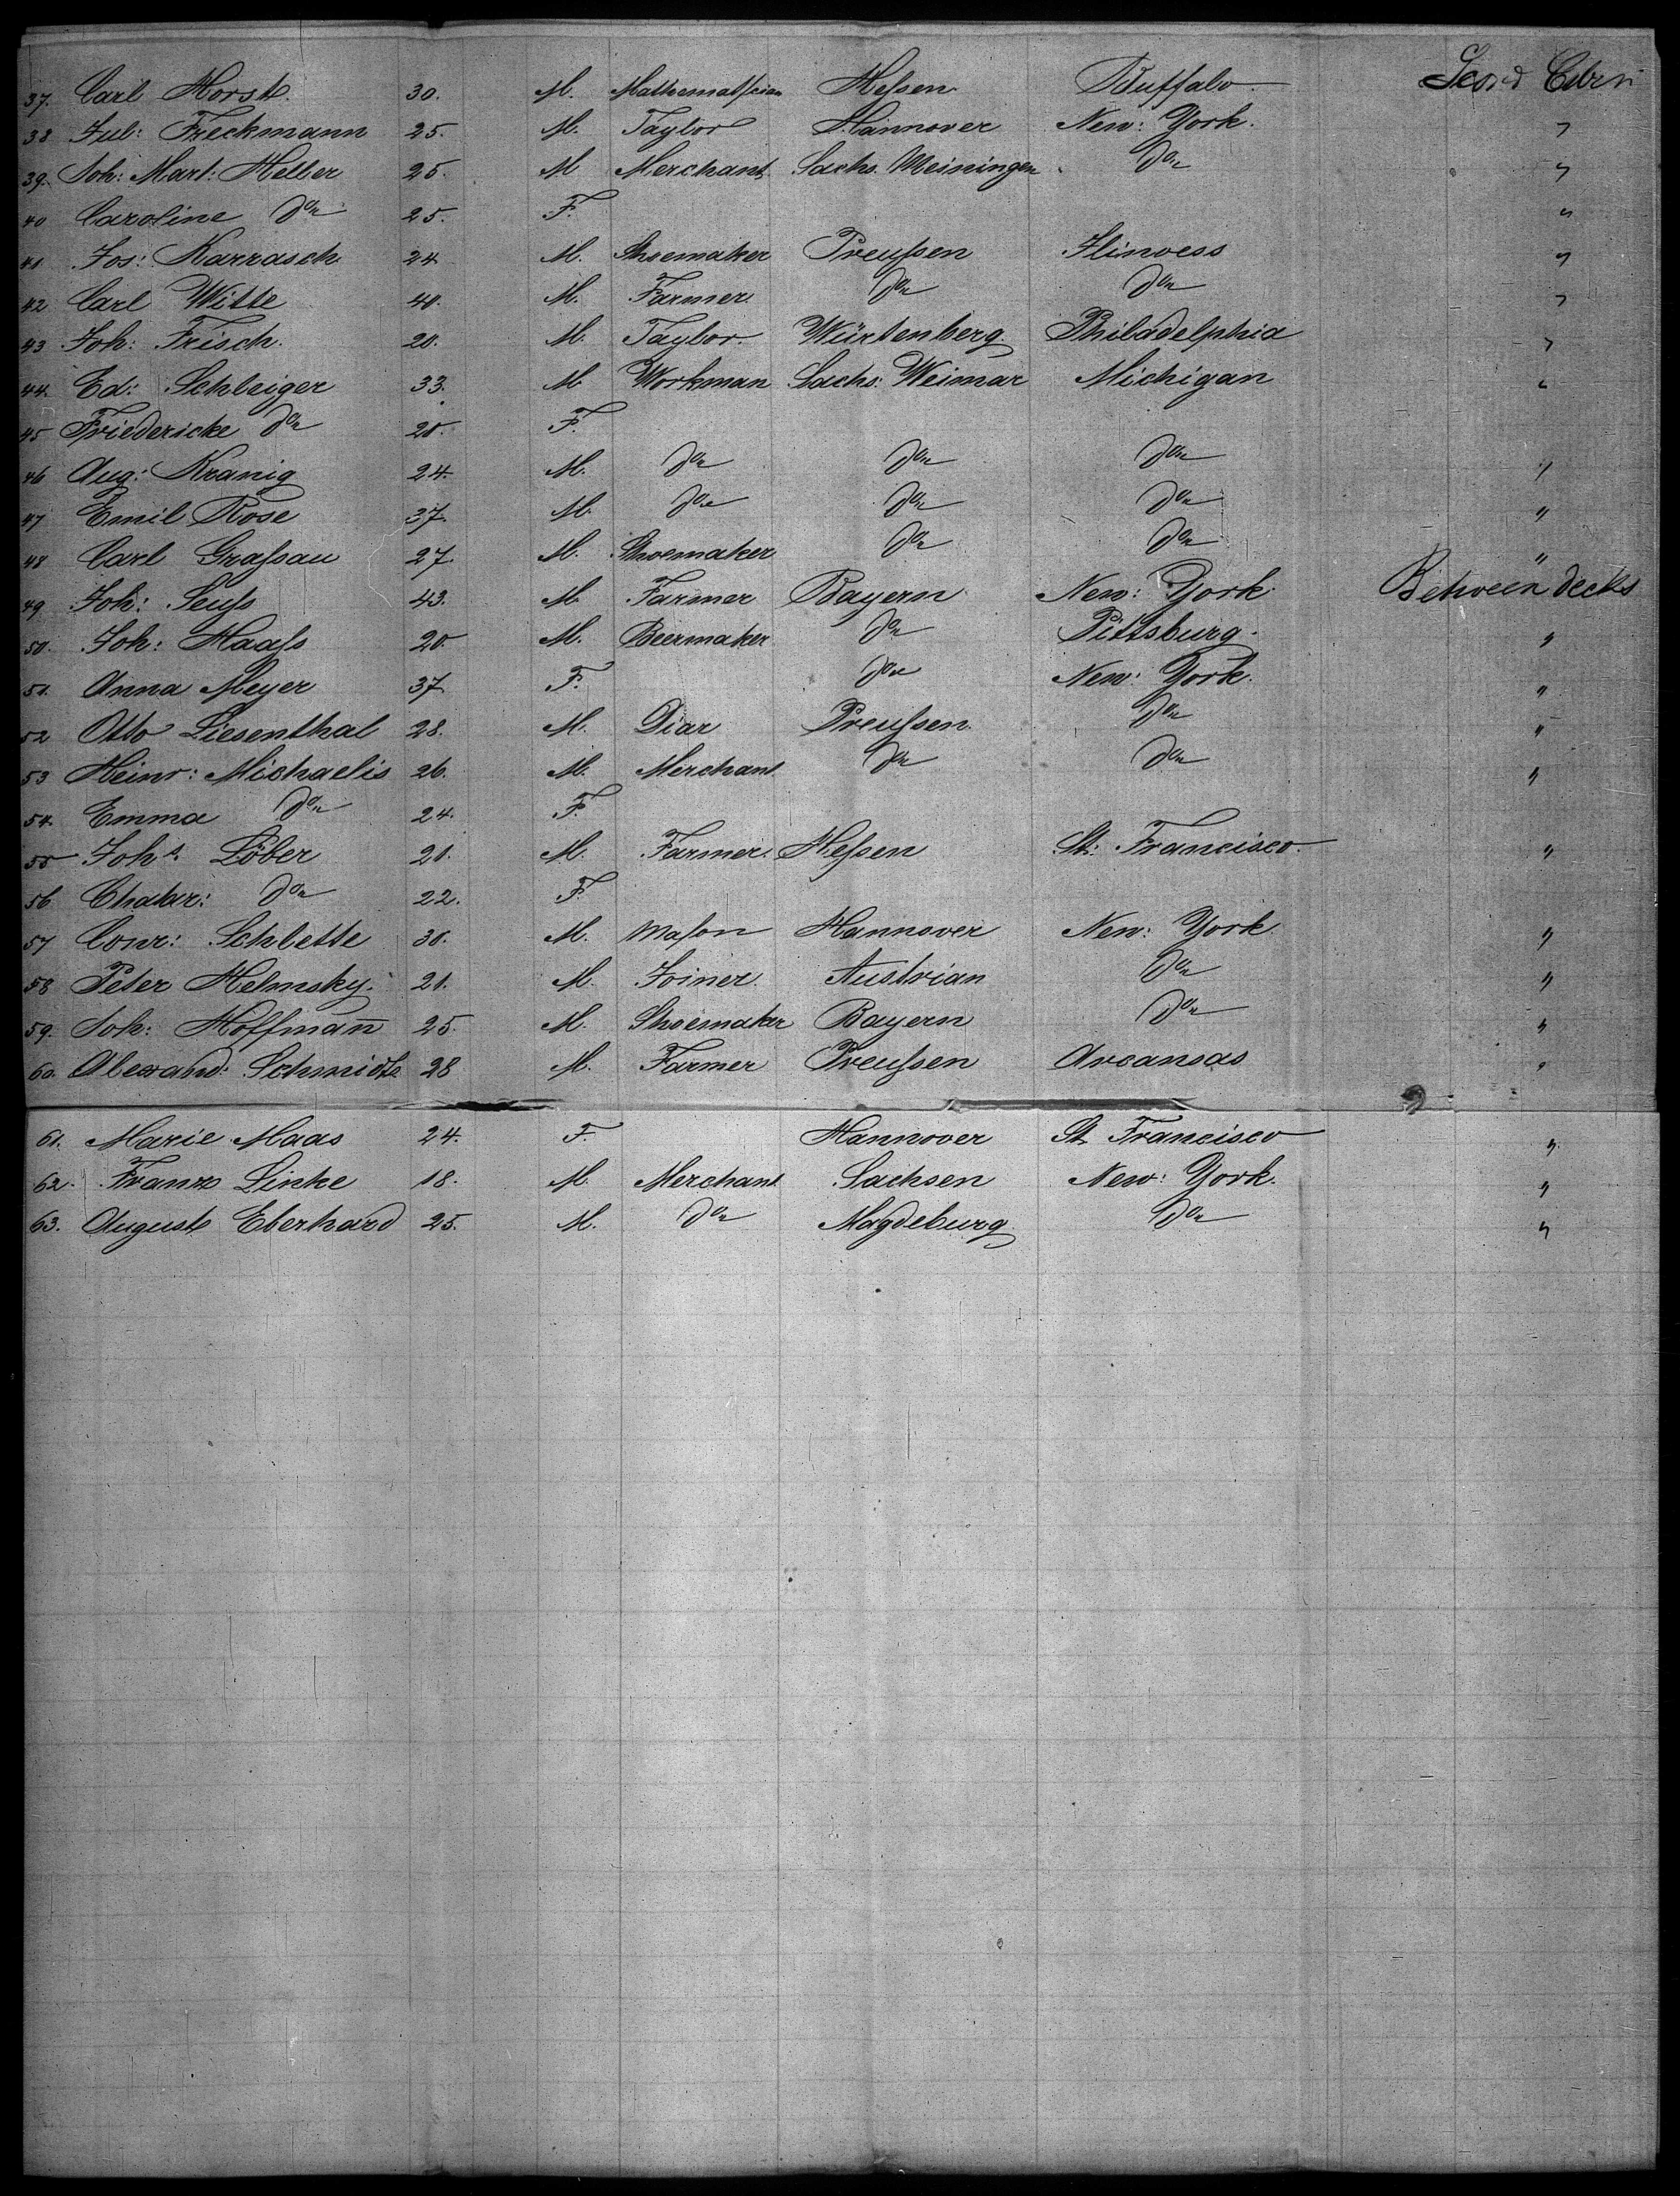 37. Carl Horst. 30. M. Mathematician Hessen Buffalo. Secnd Cabin
38 Jul: Freckmann 25. M. Taylor Hannover New: York. "
39. Joh: Mart: Heller 25. M Merchant Sachs. Meiningen do "
40 Caroline do 25. F. "
41 Jos: Karrasch 24 M. Shoemaker Preussen Ilinoess "
42 Carl Witte 40. M. Farmer do do "
43 Joh: Frisch. 20. M. Taylor. Würtenberg Philadelphia "
44. Ed: Schleiger 33. M Workman Sachs: Weimar Michigan "
45 Friedericke do 20. F.
46 Aug: Kranig 24. M. do do do "
47 Emil Rose 37. M. do do do "
48 Carl Grassau 27. M. Shoemaker do do "
49 Joh: Seuss 43. M. Farmer Bayern New: York Between decks
50. Joh: Haass 20. M. Beermaker do Pittsburg. "
51. Anna Meyer 37. F. do New: York. "
52 Otto Liesenthal 28. M. Diar Preussen do "
53 Heinr: Michaelis 26. M. Merchant do do "
54. Emma do 24. F.
55 Johs. Löber 21. M. Farmer. Hessen St: Francisco. "
56 do 22. F.
57 Conr: Schlette 30. M. Mason Hannover New: York "
58 Peter Helmsky. 21. M. Joiner. Austrian do "
59. Joh: Hoffman̄ 25. M. Shoemaker Bayern do "
60. Alexand: Schmidt 28 M. Farmer Preussen Arcansas "
61. Marie Maas 24. F. Hannover St Francisco "
62. Franz Linke 18. M. Merchant Sachsen New: York. "
63. August Eberhard 25. M. do Magdeburg do "